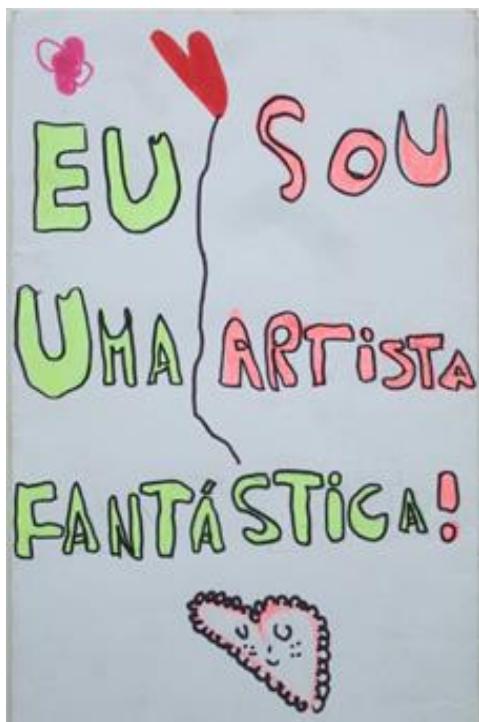 EU SOU
UMA ARTISTA
FANTÁSTICA!